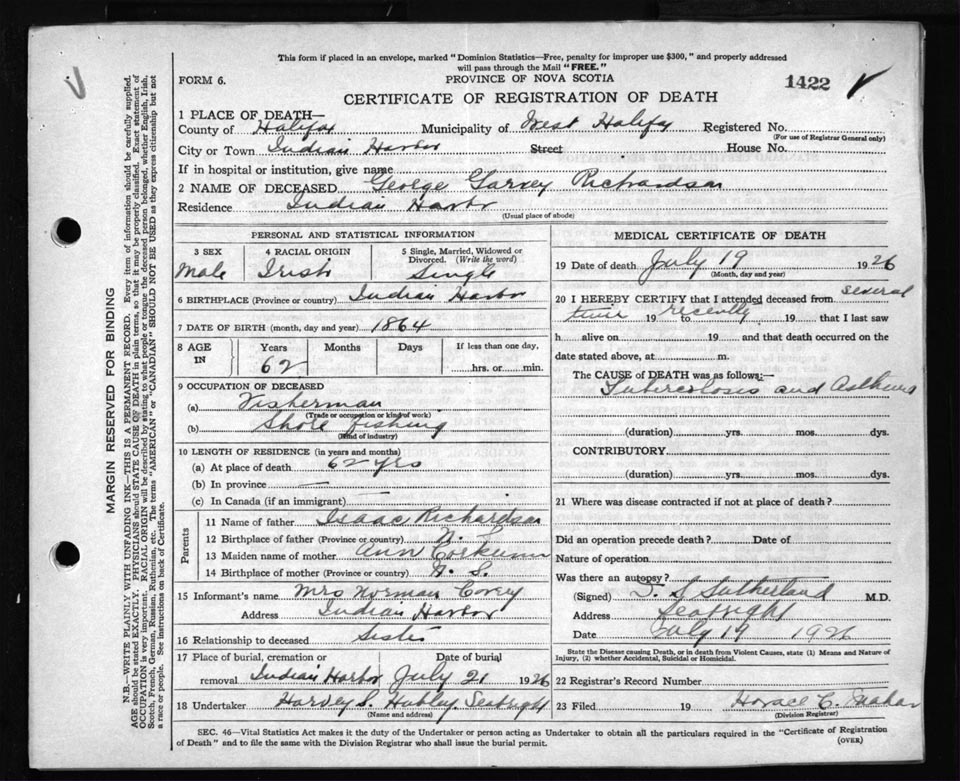 This form if placed in an envelope, marked "Dominion Statistics—Free, penalty for improper use $300," and properly addressed
will pass through the Mail "FREE."
FORM 6.
PROVINCE OF NOVA SCOTIA
1422
CERTIFICATE OF REGISTRATION OF DEATH
1 PLACE OF DEATH—
County of Halifax Municipality of West Halifax Registered No.
(For use of Registrar General only)
City or Town Indian Harbor Street House No.
If in hospital or institution, give name
2 NAME OF DECEASED George Garvey Richardson
Residence Indian Harbor
(Usual place of abode)
PERSONAL AND STATISTICAL INFORMATION
3 SEX 4 RACIAL ORIGIN 5 Single, Married, Widowed or Divorced. (Write the word)
Male Irish Single
6 BIRTHPLACE (Province or country) Indian Harbor
7 DATE OF BIRTH (month, day and year) 1864
8 AGE IN Years Months Days If less than one day,
62 hrs. or min.
9 OCCUPATION OF DECEASED
(a) Fisherman
(Trade or occupation or kind of work)
(b) Shore fishing
(Kind of industry)
10 LENGTH OF RESIDENCE (in years and months)
(a) At place of death 62 yrs
(b) In province —
(c) In Canada (if an immigrant) —
Parents
11 Name of father Isaac Richardson
12 Birthplace of father (Province or country) N. S.
13 Maiden name of mother Ann
14 Birthplace of mother (Province or country) N. S.
15 Informant's name Mrs Norman Covey
Address Indian Harbor
16 Relationship to deceased Sister
17 Place of burial, cremation or removal Indian Harbor Date of burial July 21 1926
18 Undertaker Harvey S. Hubley Seabright
(Name and address)
MEDICAL CERTIFICATE OF DEATH
19 Date of death July 19 1926
(Month, day and year)
20 I HEREBY CERTIFY that I attended deceased from several
19 to recently 19 that I last saw
h alive on 19 and that death occurred on the
date stated above, at m.
The CAUSE of DEATH was as follows:—
Tuberculosis and Asthma
(duration) yrs. mos. dys.
CONTRIBUTORY
(duration) yrs. mos. dys.
21 Where was disease contracted if not at place of death?
Did an operation precede death? Date of
Nature of operation
Was there an autopsy?
(Signed) Sutherland M.D.
Address Seabright
Date July 19 1926
State the Disease causing Death, or in death from Violent Causes, state (1) Means and Nature of
Injury, (2) whether Accidental, Suicidal or Homicidal.
22 Registrar's Record Number
23 Filed 19 Horace C.
(Division Registrar)
SEC. 46—Vital Statistics Act makes it the duty of the Undertaker or person acting as Undertaker to obtain all the particulars required in the "Certificate of Registration
of Death" and to file the same with the Division Registrar who shall issue the burial permit.
(OVER)
MARGIN RESERVED FOR BINDING
N.B.—WRITE PLAINLY WITH UNFADING INK—THIS IS A PERMANENT RECORD. Every item of information should be carefully supplied.
AGE should be stated EXACTLY. PHYSICIANS should STATE CAUSE OF DEATH in plain terms, so that it may be properly classified. Exact statement of
OCCUPATION is very important. RACIAL ORIGIN will be described by stating to what people or tongue the deceased person belonged, whether English, Irish,
Scotch, French, German, Russian, Ruthenian, etc. The terms "AMERICAN" or "CANADIAN" SHOULD NOT BE USED as they express citizenship but not
a race or people. See instructions on back of Certificate.